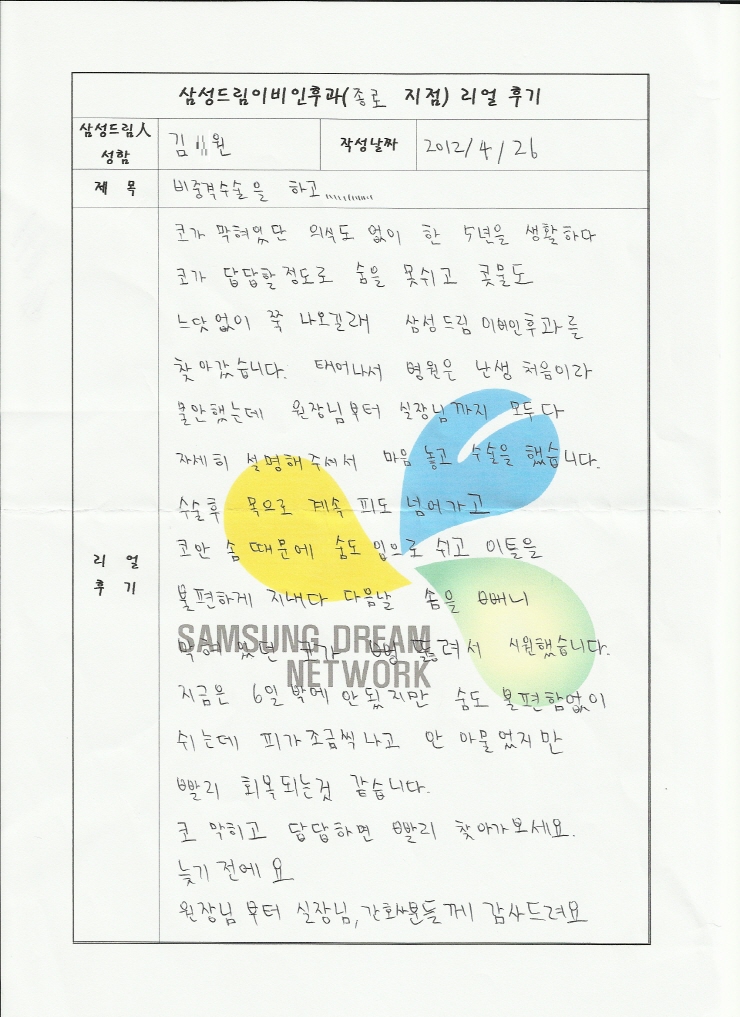 삼성드림이비인후과(종로 지점) 리얼 후기
삼성드림人 성함
김 원
작성날짜
2012/4/26
제 목
비중격수술을 하고.............
리 얼 후 기
코가 막혀있단 의식도 없이 한 5년을 생활하다
코가 답답할정도로 숨을 못쉬고 콧물도
느닷없이 쭉 나오길래 삼성드림 이비인후과를
찾아갔습니다. 태어나서 병원은 난생 처음이라
불안했는데 원장님부터 실장님까지 모두다
자세히 설명해주셔서 마음 놓고 수술을 했습니다.
수술후 목으로 계속 피도 넘어가고
코안 솜 때문에 숨도 입으로 쉬고 이틀을
불편하게 지내다 다음날 솜을 빼니
막혀 있던 코가 뻥 뚫려서 시원했습니다.
SAMSUNG DREAM
NETWORK
지금은 6일 밖에 안됬지만 숨도 불편함없이
쉬는데 피가조금씩나고 안 아물었지만
빨리 회복되는것 같습니다.
코 막히고 답답하면 빨리 찾아가보세요.
늦기 전에 요
원장님 부터 실장님, 간호사분들께 감사드려요